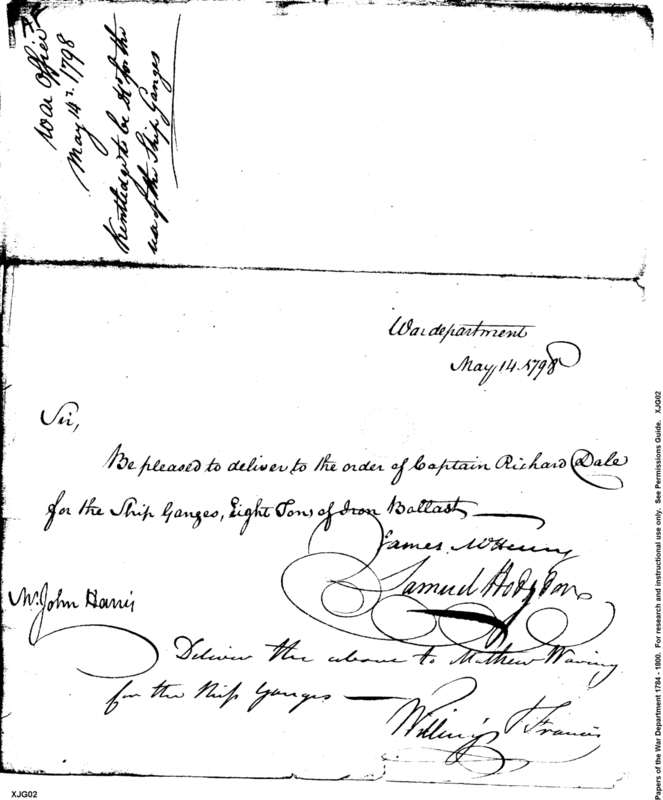 War Office
May 14th 1798
Kentledge to be dd for the
use of the Ship Ganges
War department
May, 14. 1798
Sir,
Be pleased to deliver to the order of Captain Richard Dale
for the Ship Ganges, Eight Tons of Iron Ballast
James McHenry
Samuel Hodgdon
Mr. John Harris
Deliver the above to Mathew Waring
for the Ship Ganges
Willing & Francis
Papers of the War Department 1784 - 1800. For research and instructional use only. See Permissions Guide. XJG02
XJG02